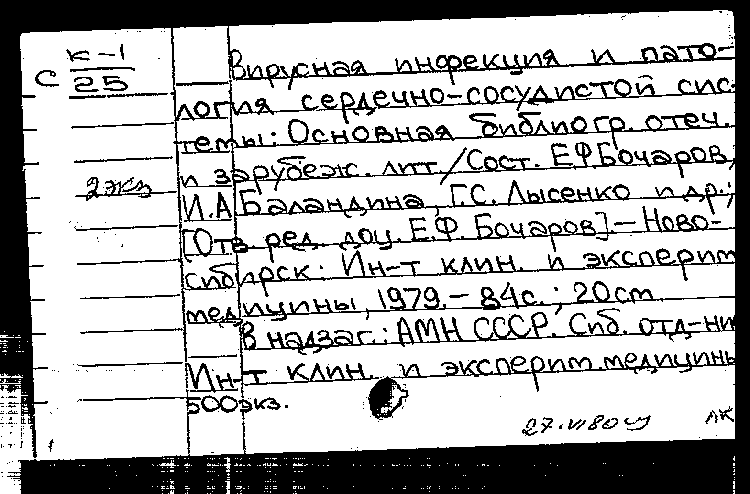 С К-1
25
2 экз
Вирусная инфекция и пато-
логия сердечно-сосудистой сис-
темы: Основная библиогр. отеч.
и зарубеж. лит. / Сост. Е.Ф. Бочаров,
И.А. Баландина, Г.С. Лысенко и др.;
[Отв. ред. доц. Е.Ф. Бочаров]. – Ново-
сибирск: Ин-т клин. и эксперим
медицины, 1979. – 84с.; 20см
В надзаг.: АМН СССР. Сиб. отд-ни
Ин-т клин. и эксперим. медицины
500экз.
27.VI 80
ЛК